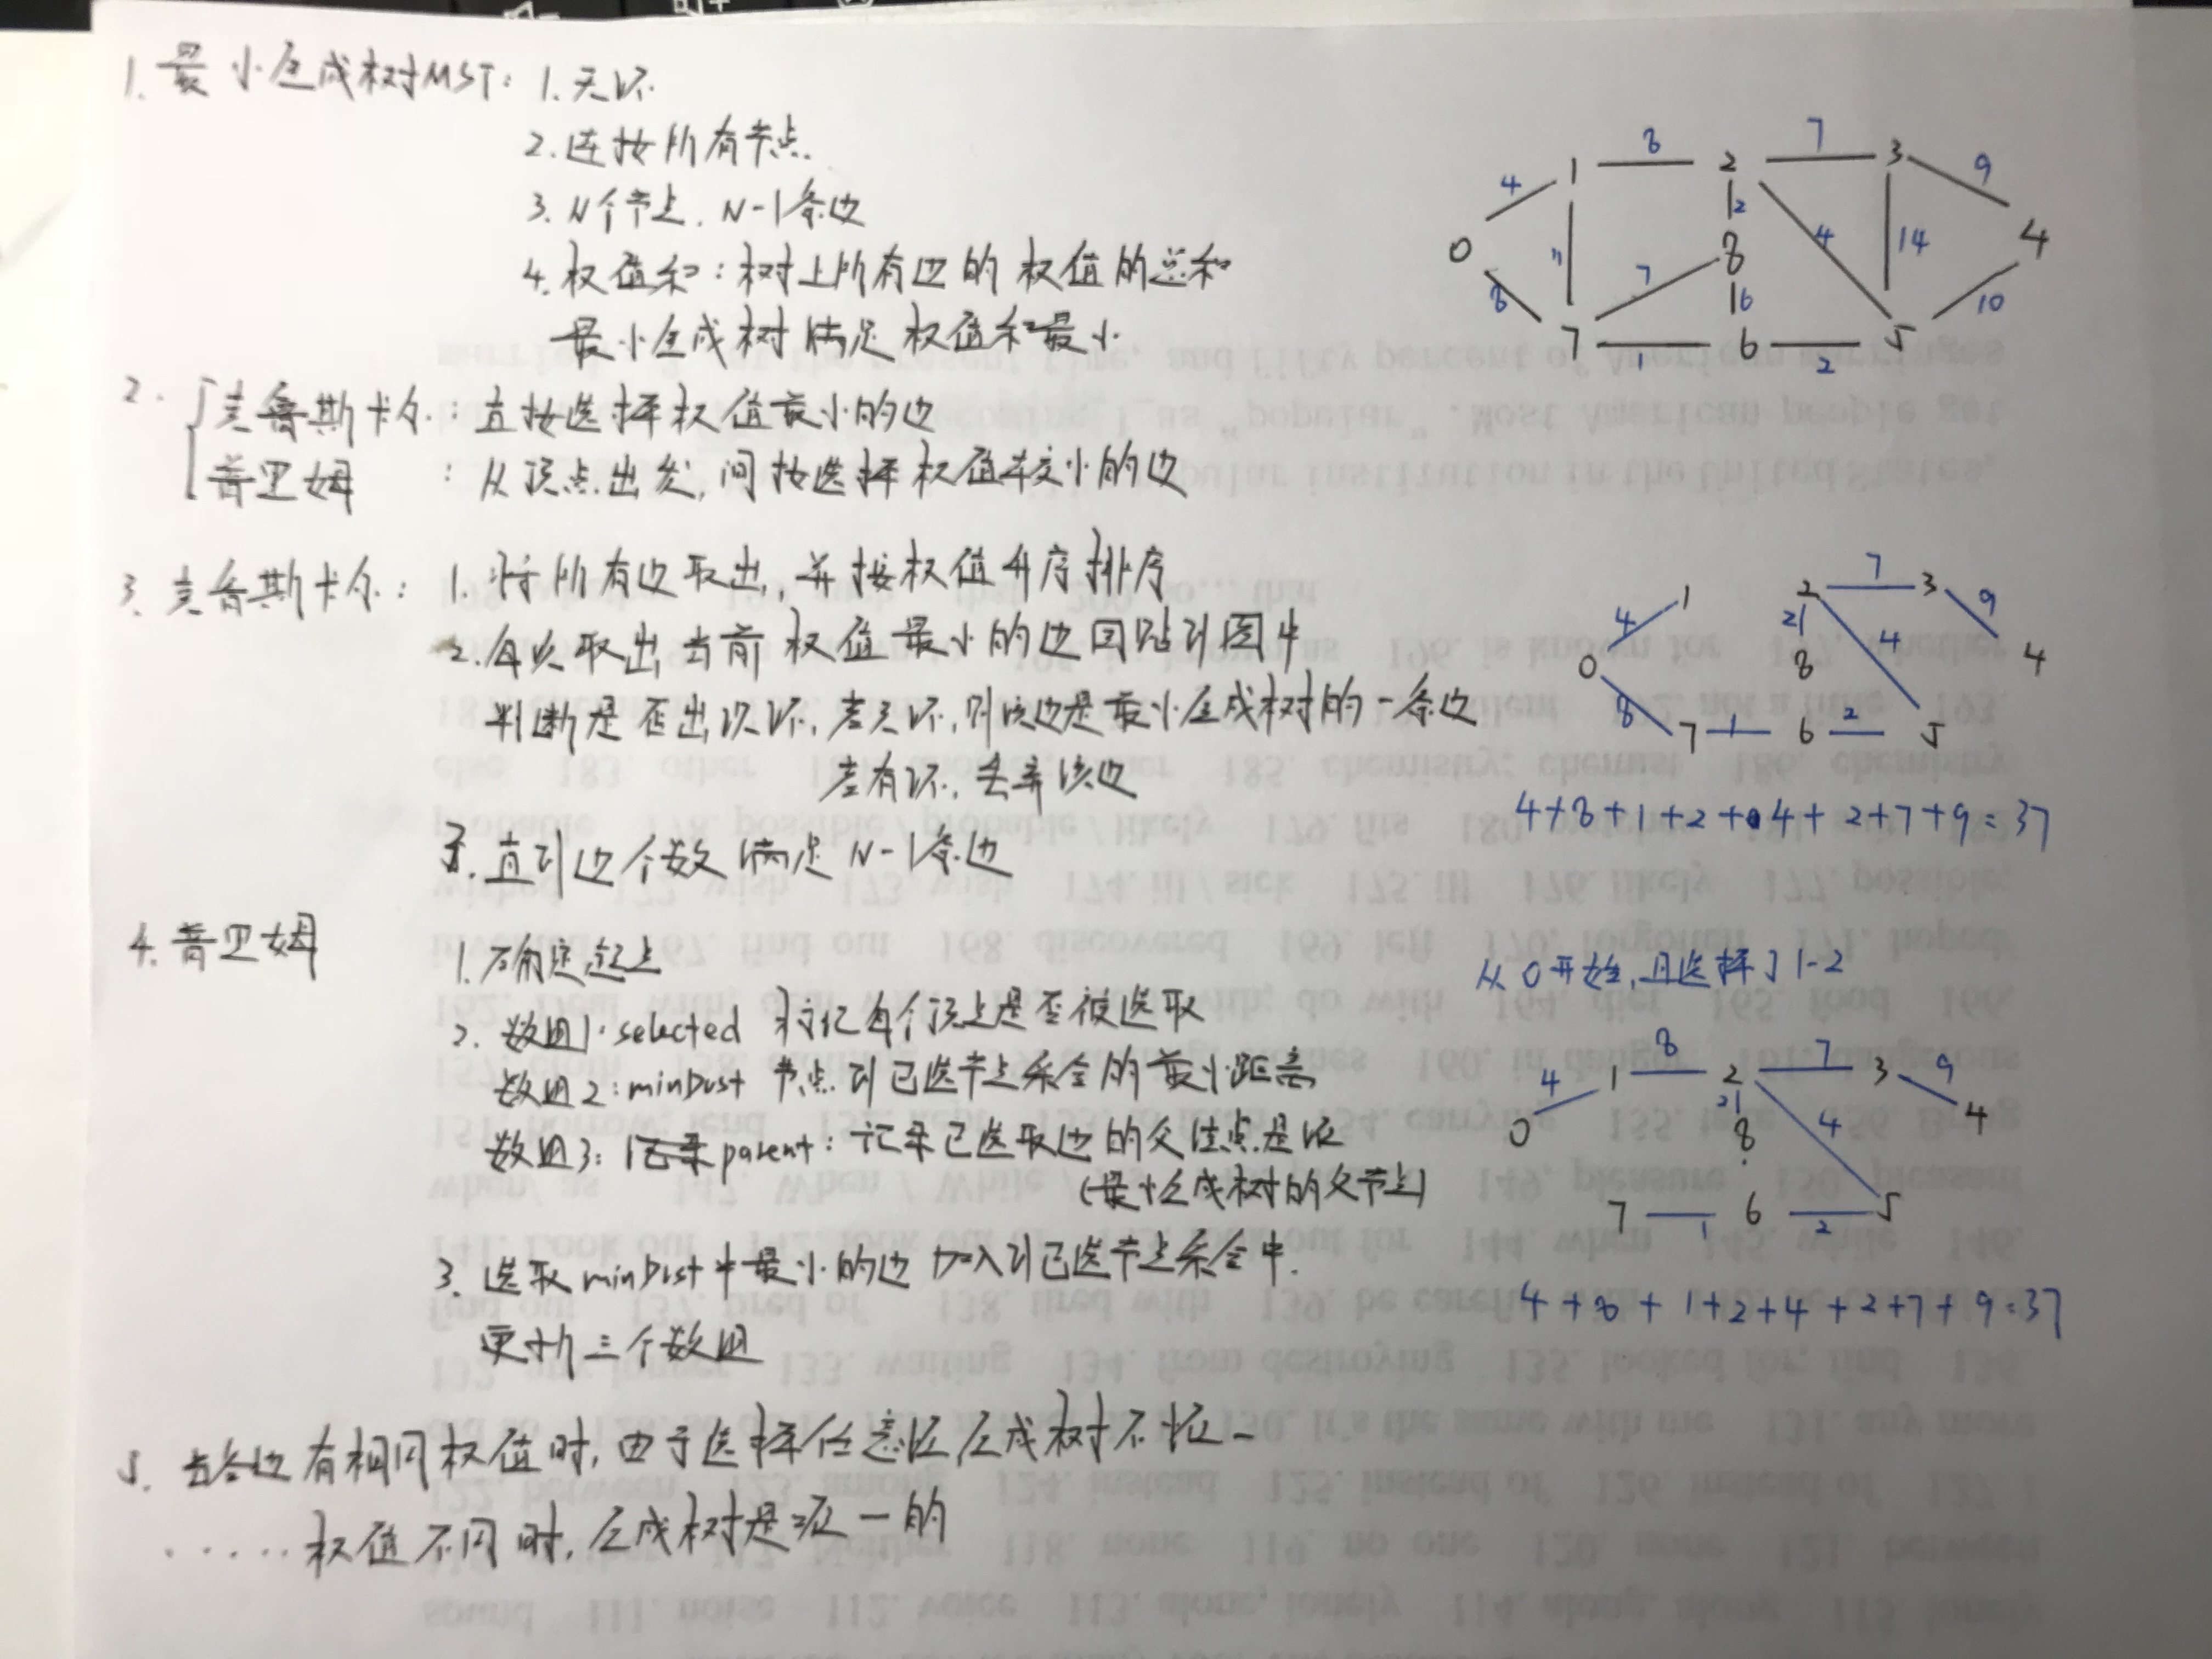 1. 最小生成树MST: 1. 无环
2. 连接所有节点
3. N个节点. N-1条边
4. 权值和: 树上所有边的权值的总和
最小生成树满足权值和最小
1 8 2 7 3 9
4
0 11 2 4 14 4
8 7 8 10
6
7 1 6 2 5
2. 克鲁斯卡尔: 直接选择权值最小的边
普里姆 : 从顶点出发, 间接选择权值较小的边
3. 克鲁斯卡尔: 1. 将所有边取出, 并按权值升序排序
2. 每次取出当前权值最小的边回贴到图中
判断是否出现环, 若无环, 则该边是最小生成树的一条边
若有环, 丢弃该边
3. 直到边个数满足N-1条边
4 1 2 7 3 9
0 2 8 4 4
8 7 1 6 2 5
4+8+1+2+4+2+7+9=37
4. 普里姆
1. 确定起点
2. 数组1: selected 标记每个顶点是否被选取
数组2: minDist 节点到已选节点集合的最小距离
数组3: parent: 记录已选取边的父结点是谁
(最小生成树的父节点)
3. 选取minDist中最小的边加入到已选节点集合中.
更新三个数组
从0开始, 且选择了1-2
4 1 8 2 7 3 9
0 2 8 4 4
7 1 6 2 5
4+8+1+2+4+2+7+9=37
5. 当各边有相同权值时, 由于选择任意性生成树不唯一
······权值不同时, 生成树是唯一的